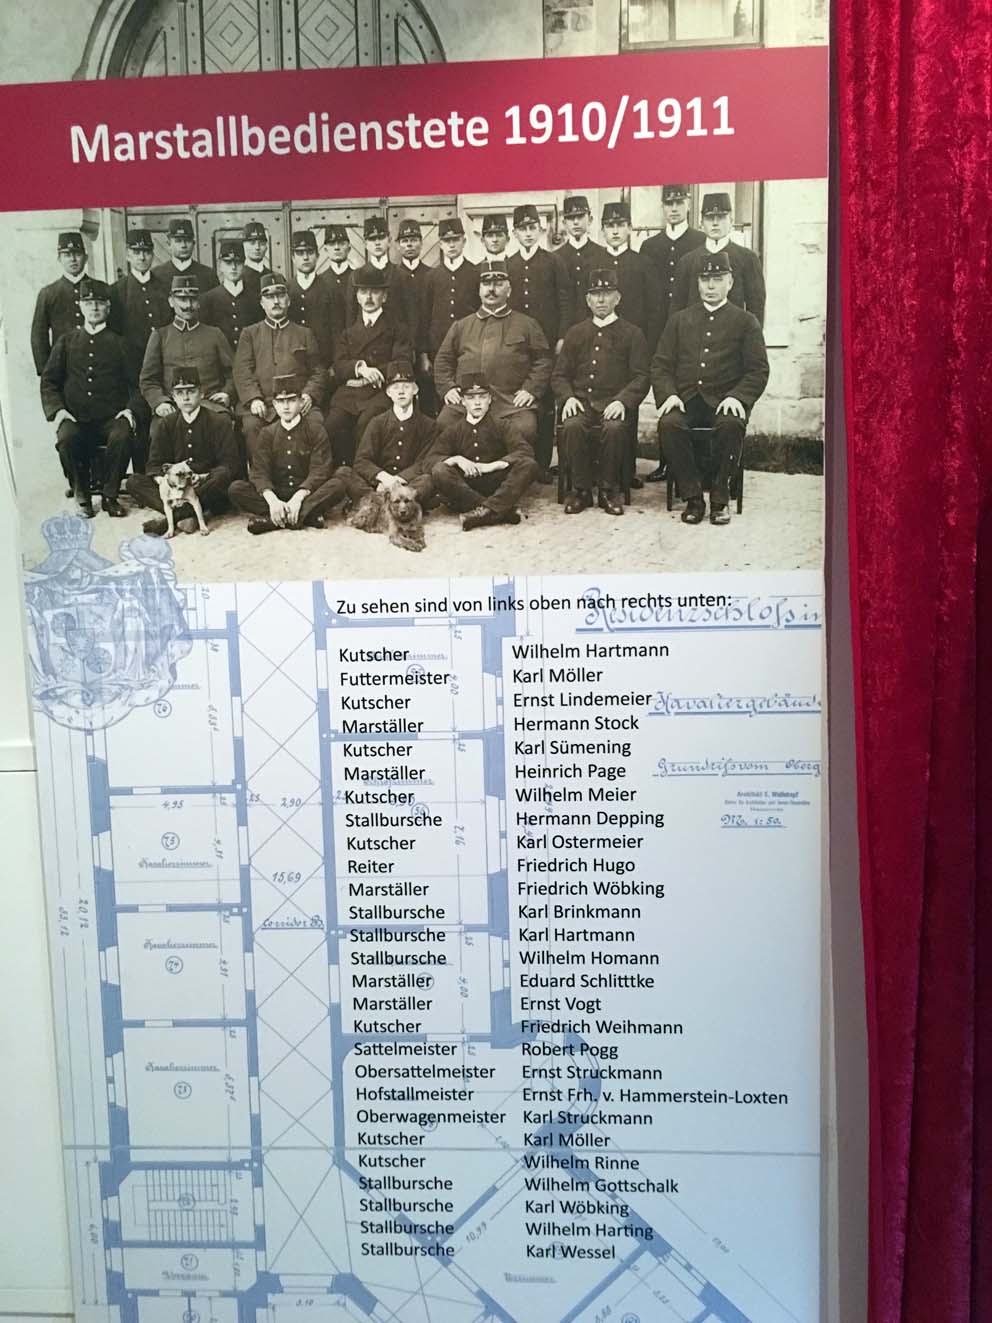 Marstallbedienstete 1910/1911
Zu sehen sind von links oben nach rechts unten:
Kutscher Wilhelm Hartmann
Futtermeister Karl Möller
Kutscher Ernst Lindemeier
Marställer Hermann Stock
Kutscher Karl Sümening
Marställer Heinrich Page
Kutscher Wilhelm Meier
Stallbursche Hermann Depping
Kutscher Karl Ostermeier
Reiter Friedrich Hugo
Marställer Friedrich Wöbking
Stallbursche Karl Brinkmann
Stallbursche Karl Hartmann
Stallbursche Wilhelm Homann
Marställer Eduard Schlitttke
Marställer Ernst Vogt
Kutscher Friedrich Weihmann
Sattelmeister Robert Pogg
Obersattelmeister Ernst Struckmann
Hofstallmeister Ernst Frh. v. Hammerstein-Loxten
Oberwagenmeister Karl Struckmann
Kutscher Karl Möller
Kutscher Wilhelm Rinne
Stallbursche Wilhelm Gottschalk
Stallbursche Karl Wöbking
Stallbursche Wilhelm Harting
Stallbursche Karl Wessel
Residenzschloss in
Kavaliergebäude
Grundriss vom Oberg
M. 1:50.
4,95
2,90
15,69
Corridor
Kavalierzimmer
75
Kavalierzimmer
74
Kavalierzimmer
73
71
10,99